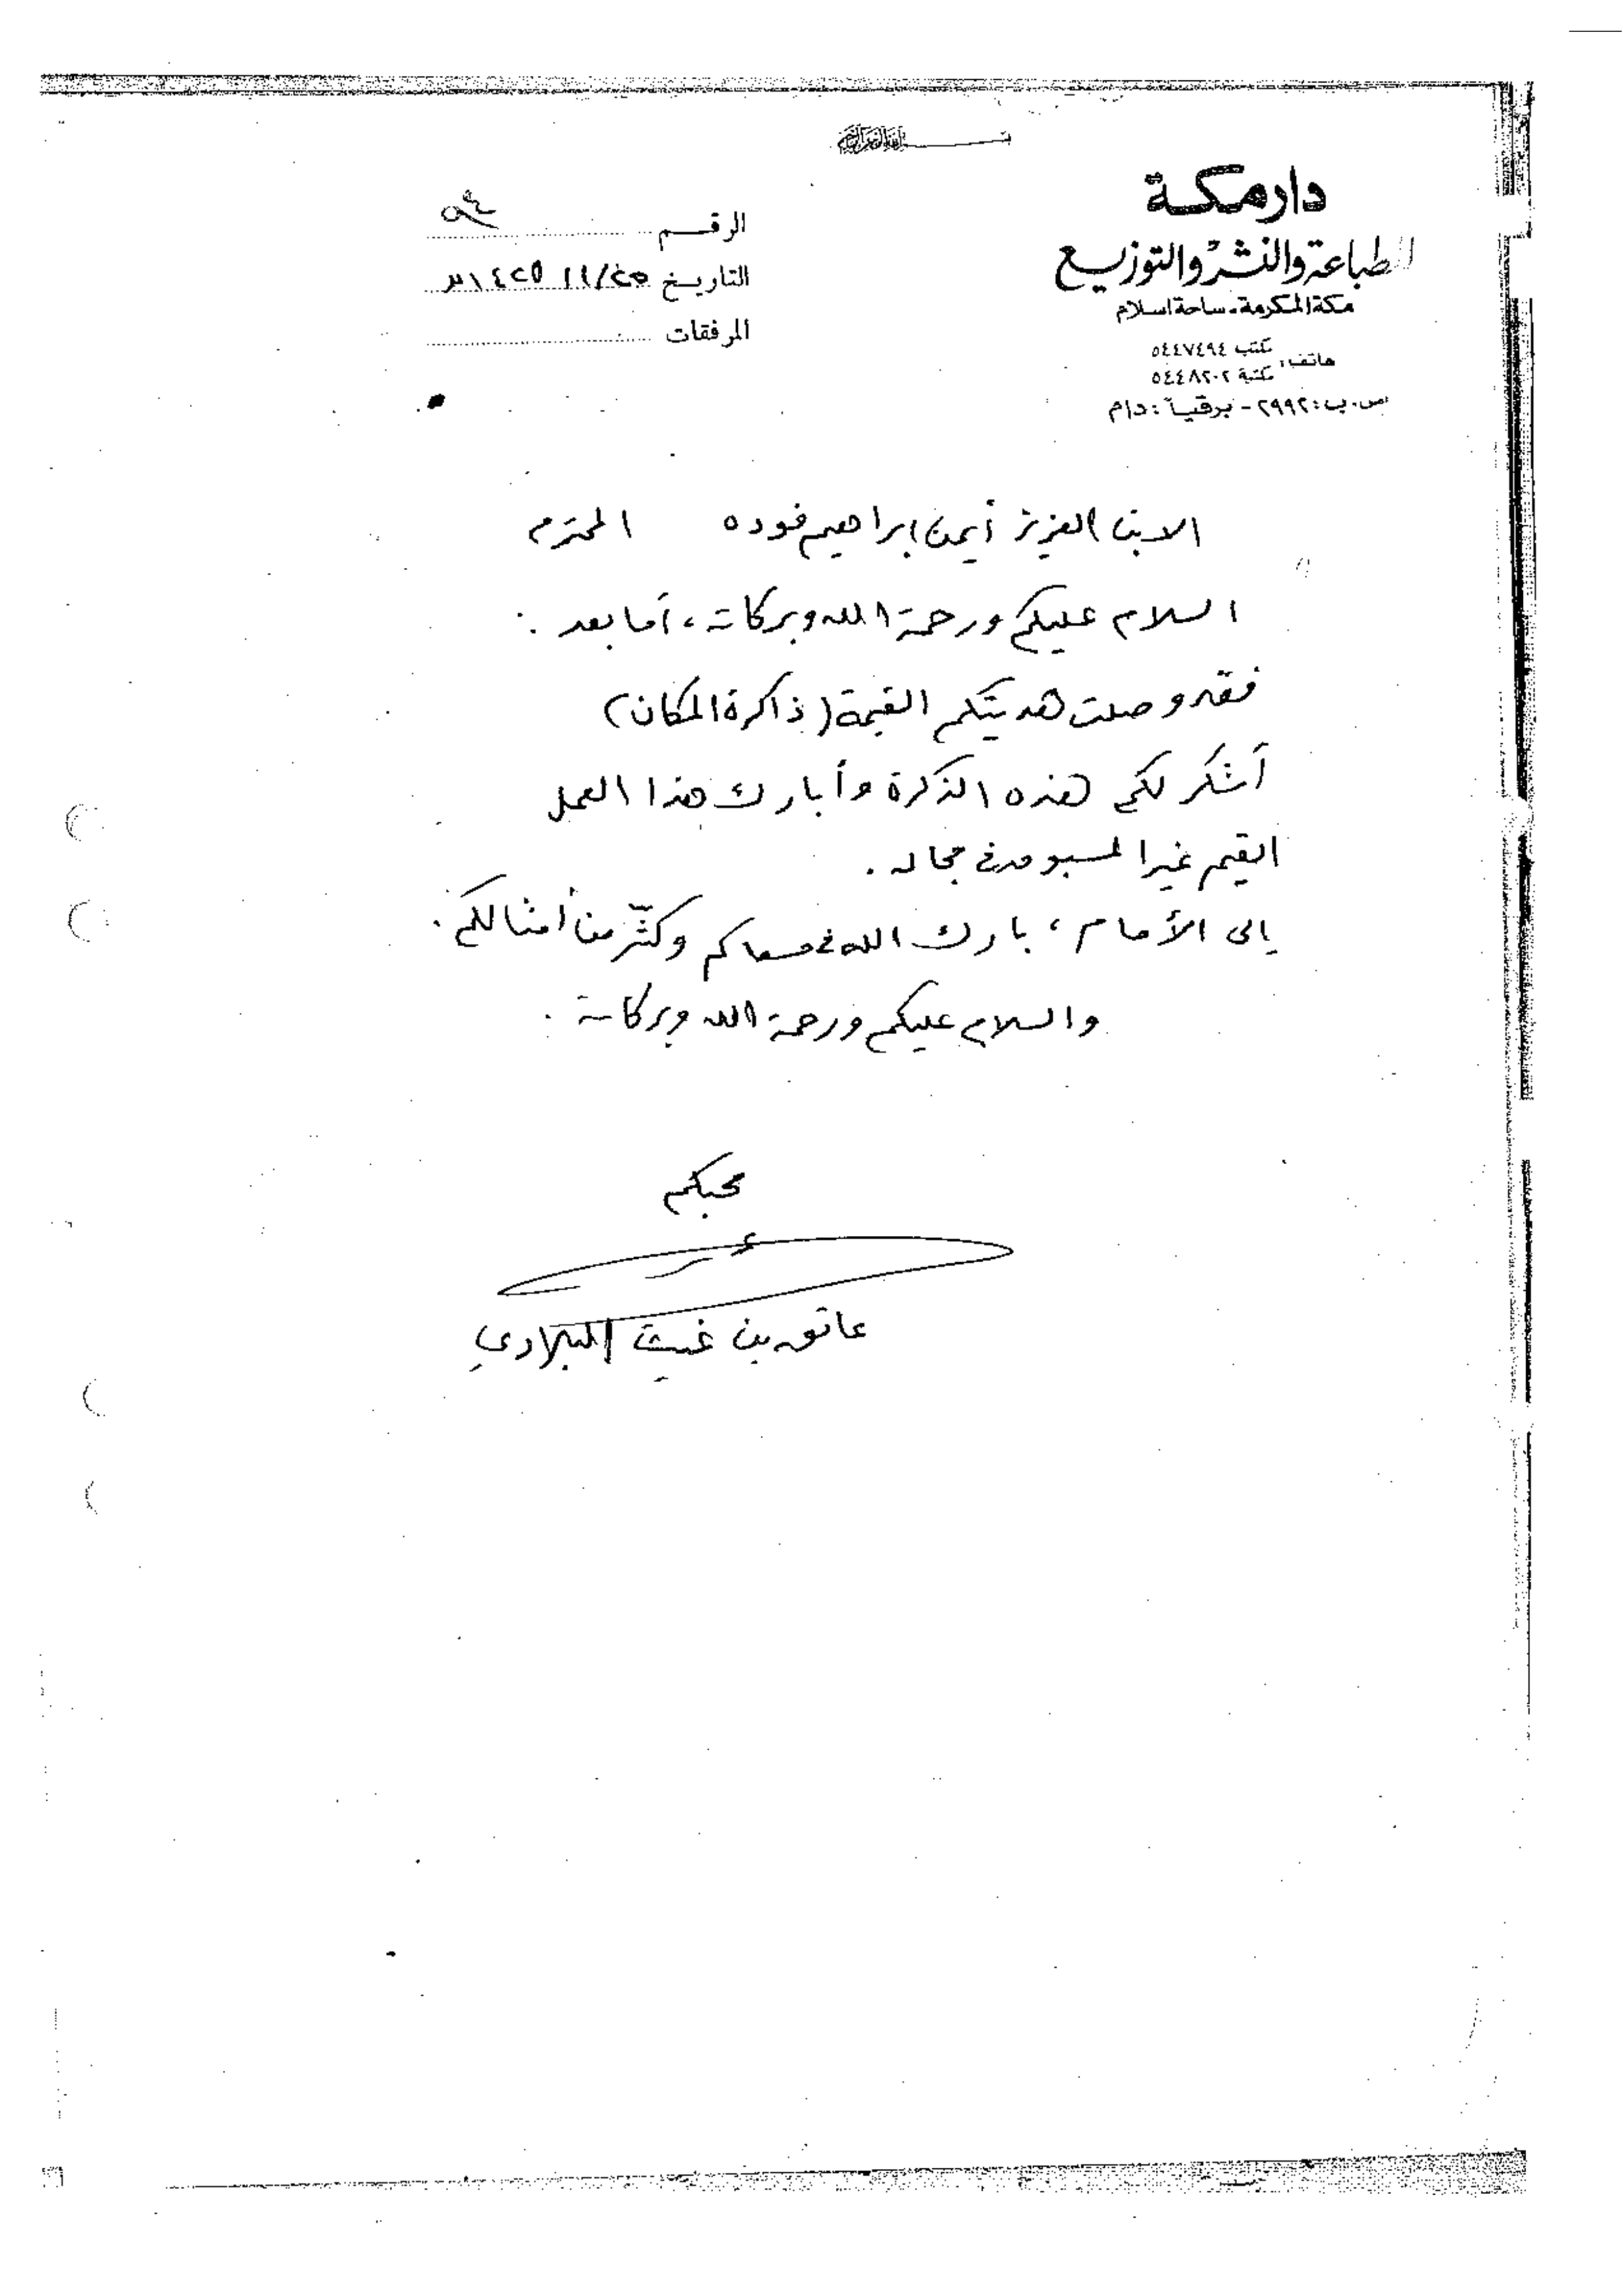 بسم الله الرحمن الرحيم
دار مكة
للطباعة والنشر والتوزيع
مكة المكرمة - ساحة اسلام
هاتف: مكتب ٥٤٤٧٤٩٤
مكتبة ٥٤٤٨٢٠٢
ص.ب: ٢٩٩٢ - برقياً: دام
الرقم
التاريخ ١٤٢٥ هـ
المرفقات
الابن العزيز أيمن إبراهيم فوده المحترم
السلام عليكم ورحمة الله وبركاته، أما بعد:
فقد وصلت هديتكم القيمة (ذاكرة المكان)
أشكر لكم هذه الذكرة وأبارك هذا العمل
القيم غير المسبوق في مجاله.
إلى الأمام، بارك الله في مسعاكم وكثّر من أمثالكم.
والسلام عليكم ورحمة الله وبركاته.
محبكم
عاتق بن غيث البلادي